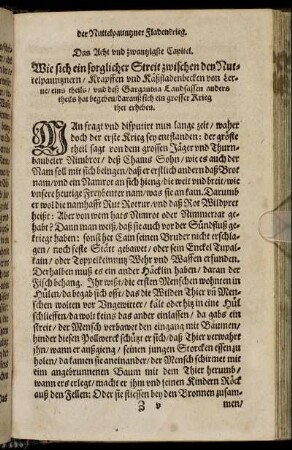 der Nuttelpaumzner Fladenkrieg.
Das Acht vnd zwentzigste Capitel.
Wie sich ein sorglicher Streit zwischen den Nut-
telpaumznern / Krapffen vnd Käßfladenbecken von Ler-
ne / eins theils / vnd deß Gargantua Landsassen anders
theils hat begeben / darauß sich ein grosser Krieg
thet erheben.
MAn fragt vnd disputirt nun lange zeit / waher
doch der erste Krieg sey entstanden: der gröste
theil sagt von dem grossen Jäger vnd Thurn-
baubeler Nimbrot / deß Chams Sohn / wie es auch der
Nam soll mit sich bringen / daß er erstlich andern daß Brot
nam / vnd ein Namrot an sich hieng / die weit vnd breit / wie
vnsere heurige Freybeuter nam / was sie an kam. Darumb
er wol die namhafft Rut Rottur / vnd daß Rot Wildpret
heißt: Aber von wem hats Nimrot oder Nimmerrat ge-
habt? Dann man weiß / daß sie auch vor der Sündfluß ge-
krieget haben: sonst het Cain seinen Bruder nicht erschla-
gen / noch feste Stätt gebawet / oder sein Enckel Tupal-
kain / oder Toppelkeinnutz Wehr vnd Waffen erfunden.
Derhalben muß es ein ander Häcklin haben / daran der
Fisch behang. Ihr wißt / die ersten Menschen wohnten in
Hülen / da begab sich offt / das die Wilden Thier vñ Men-
schen wolten vor Vngewitter / kält oder hitz in eine Hül
schlieffen / da wolt keins das ander einlassen / da gabs ein
streit / der Mensch verbawet den eingang mit Bäumen /
hinder diesen Pollwerck schützt er sich / daß Thier verwahrt
ihn / wann er außgieng / seinen jungen Storcken essen zu
holen / da kamen sie aneinander / der Mensch schirmet mit
eim angebrunnenen Baum mit dem Thier herumb /
wann ers erlegt / macht er ihm vnd seinen Kindern Röck
auß den Fellen: Oder sie stiessen bey den Bronnen zusam-
Z v men /